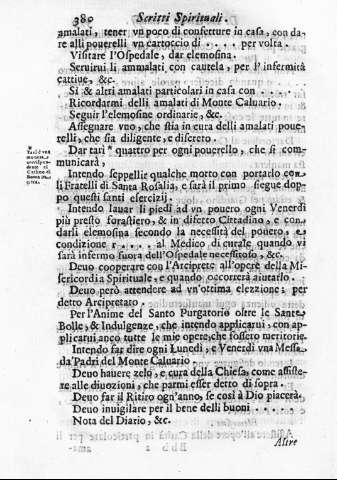 380 Scritti Spirituali.
amalati, tener vn poco di confetture in casa, con da-
re alli pouerelli vn cartoccio di . . . . per volta.
Visitare l'Ospedale, dar elemosina.
Seruirui li ammalati con cautela, per l' infermità
cattiue, &c.
Si & altri amalati particolari in casa con . . . .
Ricordarmi delli amalati di Monte Caluario.
Seguir l'elemosine ordinarie, &c.
Assegnare vno, che stia in cura delli amalati poue-
relli, che sia diligente, e discreto.
Dar tarì * quattro per ogni pouerello, che si co-
municarà,
Intendo seppellir qualche morto con portarlo con
li Fratelli di Santa Rosalia, e sarà il primo siegue dop-
po questi santi esercizij.
Intendo lauar li piedi ad vn pouero ogni Venerdì
più presto forastiero, & in difetto Cittadino, e con
darli elemosina secondo la necessità del pouero, e
condizione r . . . . al Médico di curale quando vi
sarà infermo fuora dell'Ospedale necessitoso, &c.
Deuo cooperare con l'Arciprete all'opere della Mi-
sericordia Spirituale, e quando occorrerà aiutarlo.
Deuo però attendere ad vn'ottima elezzione; per
detto Arcipretato.
Per l'Anime del Santo Purgatorio oltre le Sante
Bolle, & Indulgenze, che intendo applicarui, con ap-
plicarui anco tutte le mie opere, che fossero meritorie.
Intendo far dire ogni Lunedì, e Venerdì vna Messa
da'Padri del Monte Caluario.
Deuo hauere zelo, e cura della Chiesa, come assiste-
re alle diuozioni, che parmi esser detto di sopra.
Deuo far il Ritiro ogn'anno, se così à Dio piacerà.
Deuo inuigilare per il bene delli buoni . . . . .
Nota del Diario, &c.
Altre
* Tarì è vna
moneta